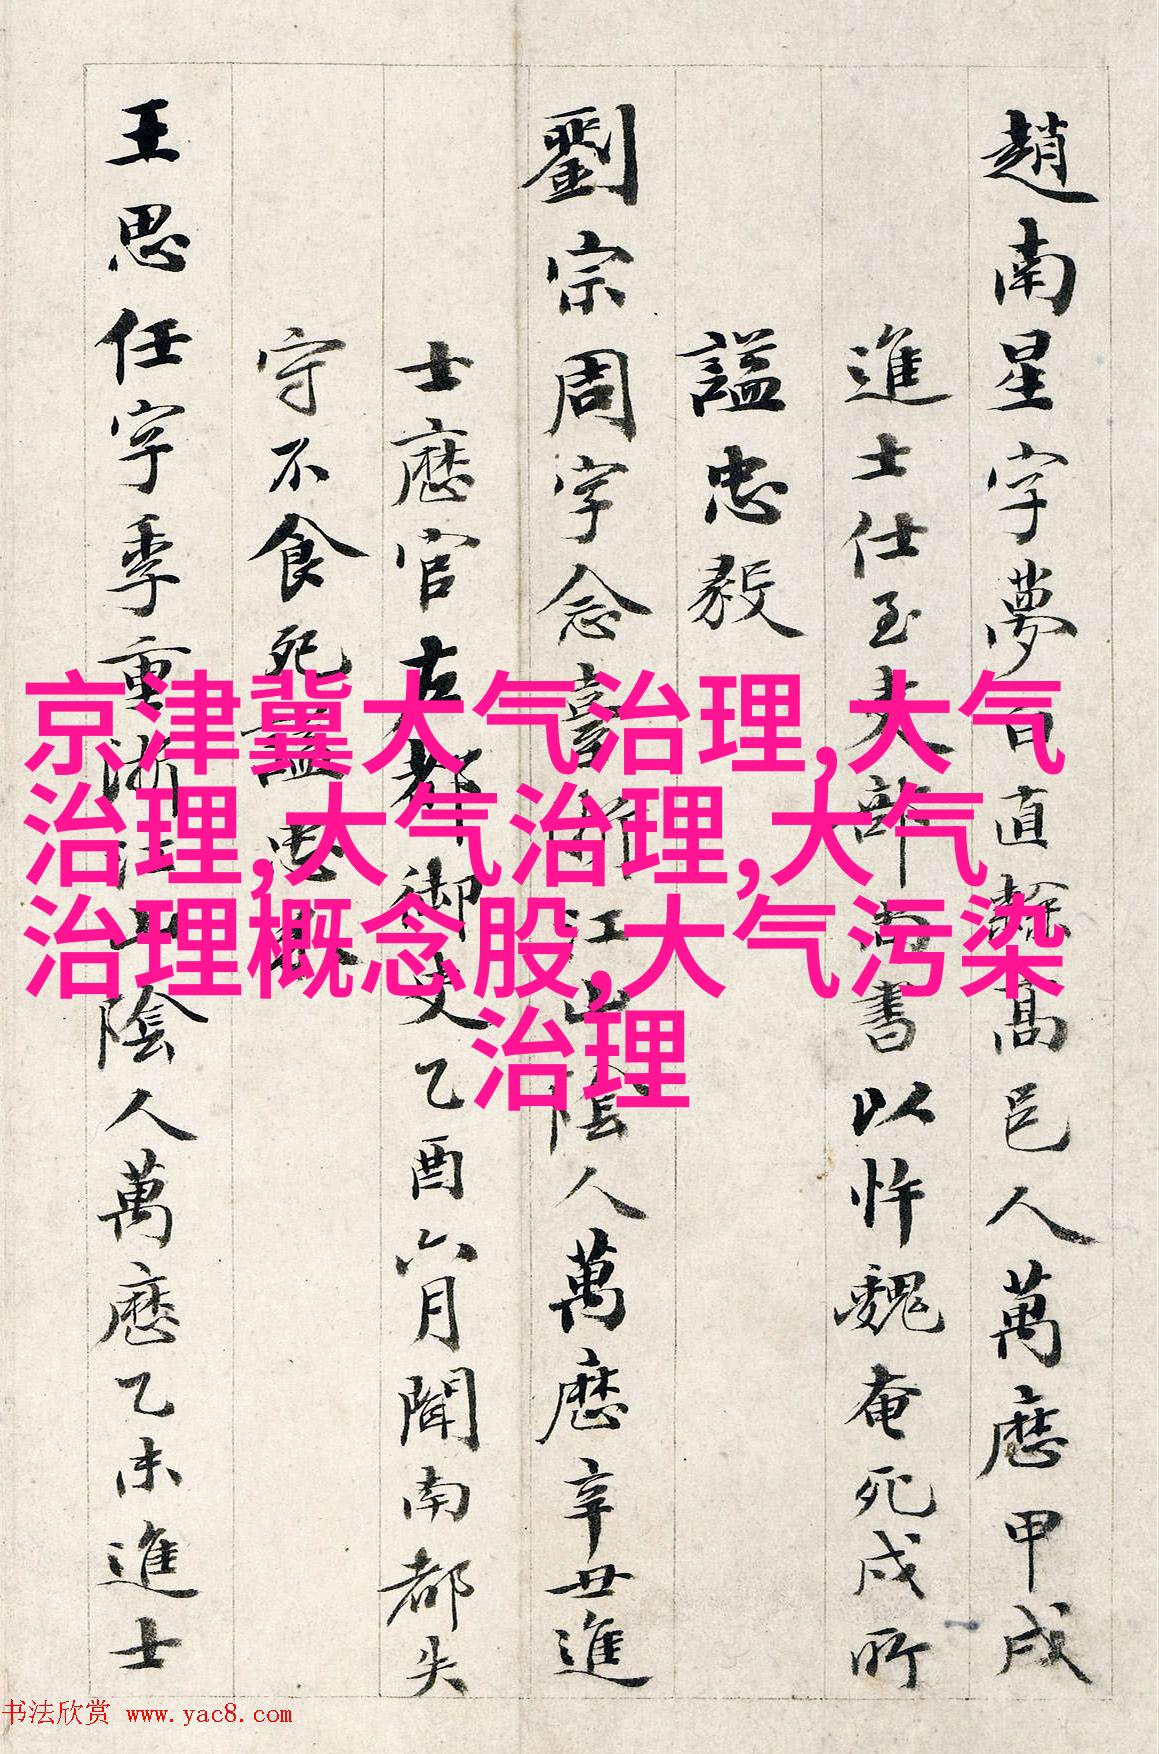 趙南星字夢白直隸高邑人萬曆甲戌
進士仕至吏部尚書以忤魏奄死戍所
諡忠毅
劉宗周字念臺浙江山陰人萬曆辛丑進
士曆官左都御史乙酉六月聞南都失
守不食死諡忠
王思任字季重浙江山陰人萬曆乙未進士
京津冀大气治理,大气
治理,大气治理,大气
治理概念股,大气污染
治理
书法欣赏 www.yac8.com